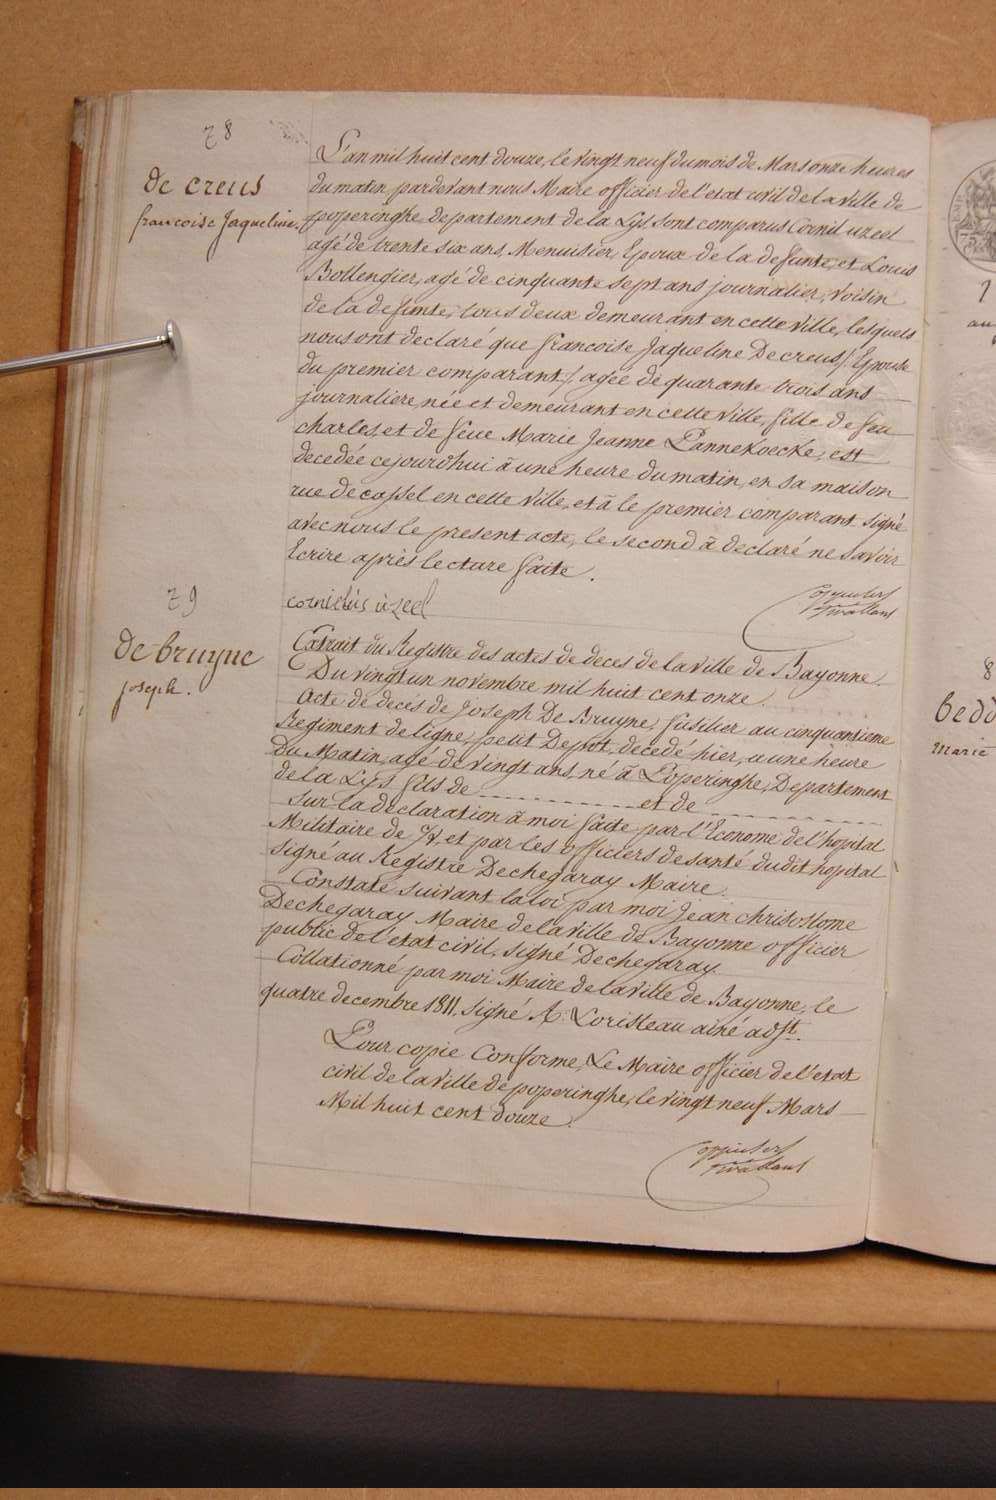 78
de creus
francoise Jaqueline.
L'an mil huit cent douze, le vingt neuf du mois de Mars onze heures
du matin, pardevant nous Maire officier de l'etat civil de la ville de
poperinghe, departement de la Lys sont comparus Cornil uzeel
agé de trente six ans, Menuisier, Epoux de la defunte, et Louis
Bollengier, agé de cinquante sept ans journalier, voisin
de la defunte, tous deux demeurant en cette ville, lesquels
nous ont declaré que francoise Jaqueline Decreus /: Epouse
du premier comparant :/ agée de quarante trois ans
journaliere, née et demeurant en cette ville, fille de feu
charles, et de feue Marie Jeanne Pannekoecke, est
decedée cejourd'hui à une heure du matin, en sa maison
rue de cassel en cette ville, et à le premier comparant signé
avec nous le present acte, le second à declaré ne savoir
Ecrire après lecture faite.
cornielis uzeel
79
de bruyne
joseph.
Extrait du Registre des actes de deces de la ville de Bayonne.
Du vingt un novembre mil huit cent onze.
Acte de deces de Joseph De Bruyne, fusilier au cinquantieme
Regiment de ligne, petit Depot, decedé hier, a une heure
du Matin, agé de vingt ans né à Poperinghe, Departement
de la Lys fils de - - - - - - - - - - et de - - - - - - - - - -
sur la declaration à moi faite par l'Econome de l'hopital
Militaire de et par les officiers de santé dudit hopital
signé au Registre Dechegaray Maire.
Constaté suivant la loi par moi Jean chrisostome
Dechegaray Maire de la ville de Bayonne officier
public de l'etat civil, signé Dechegaray.
Collationné par moi Maire de la ville de Bayonne, le
quatre decembre 1811. signé A. Loristeau ainé adjt.
Pour copie Conforme, Le Maire officier de l'etat
civil de la ville de poperinghe, le vingt neuf Mars
Mil huit cent douze.
8
marie